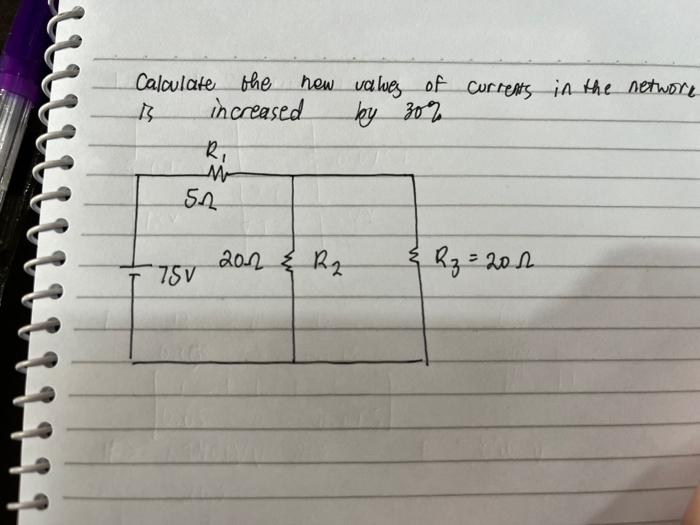 Calculate the new values of currents in the network
is increased by 30%
R1
5Ω
75V
20Ω
R2
R3 = 20Ω